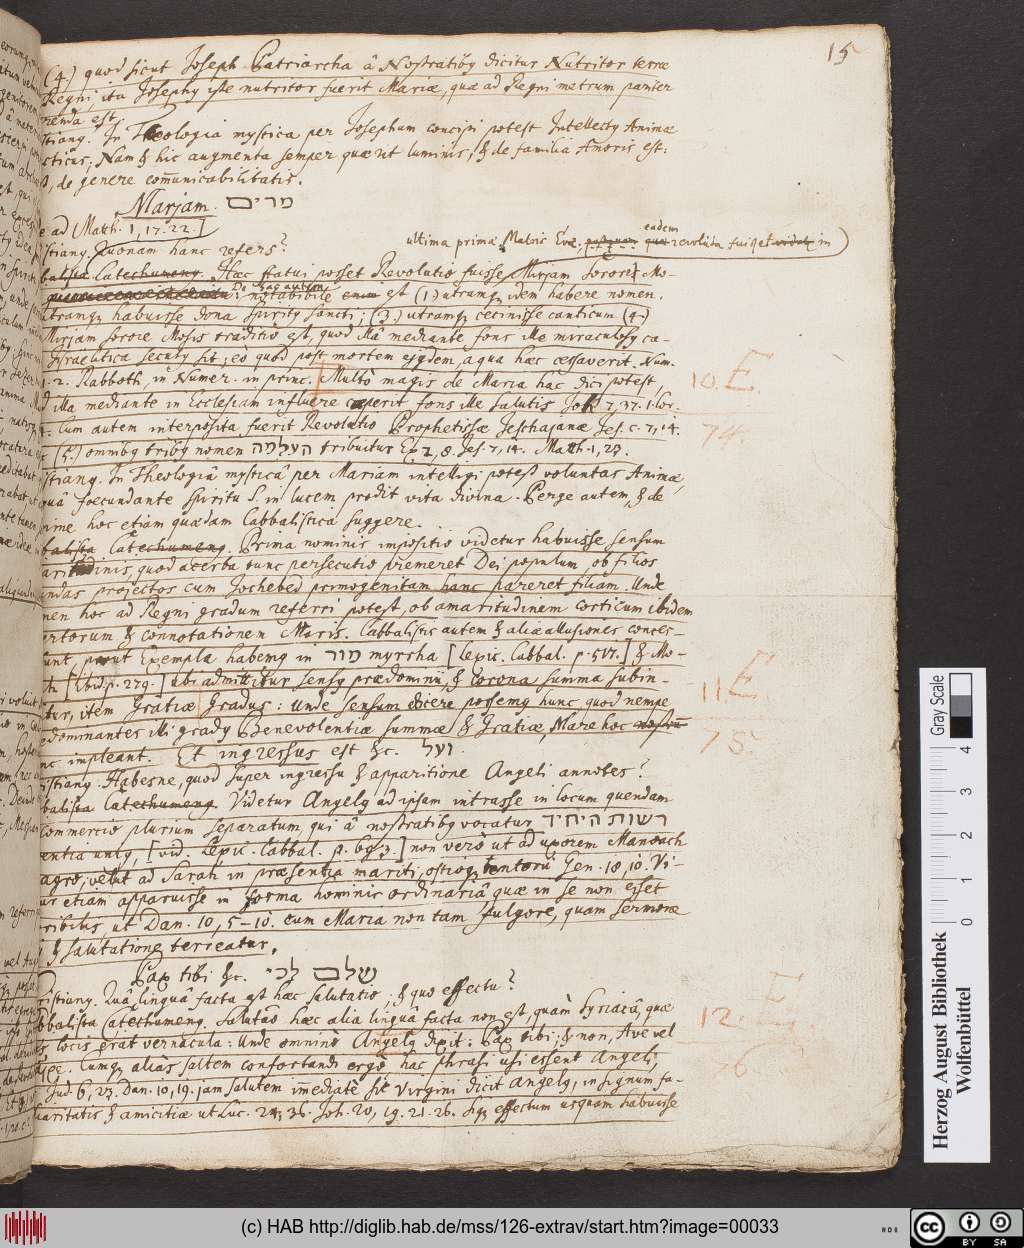 15
(4.) quod sicut Joseph Patriarcha â Nostratibꝫ dicitur Nutritor terræ
Regni ita Josephꝫ iste nutritor fuerit Mariæ, quæ ad Regni metrum pariter
renda est.
stiang. In Theologia mystica per Josephum concipi potest Intellectꝫ Animæ
sticus, Nam & hic augmenta semper quærit luminis, & de familia Amoris est:
de genere com̄unicabilitatis.
Marjam. מרים
e ad Matth. 1, 17. 22.]
istiang. Quonam hanc refers?
ultima prima Matris Evæ, postquam quæ eadem revoluta fuisset in
Catechumeng. Hæc statui posset Revolutio fuisse Mirjam Sororis Mo-
notabibile enim est (1) utramqꝫ idem habere nomen.
utramqꝫ habuisse dona Spiritꝫ Sancti; (3.) utramqꝫ cecinisse canticum (4.)
Mirjam sorore Mosis traditio est, quod illâ mediante fons ille miraculosꝫ ca-
Israelitica secutꝫ sit; eò quod post mortem ejꝫdem, aqua hæc cessaverit. Num.
1. 2. Rabboth, in Numer. in princ. Multò magis de Maria hâc dici potest,
d illa mediante in Ecclesiam influere cæperit fons ille salutis Joh. 7, 37. 1. Cor.
10. E.
74.
Cum autem interposita fuerit Revolutio Prophetissæ Jeschajanæ Jes. c. 7, 14.
(5.) omnibꝫ tribꝫ nomen העלמה tribuitur Ex 2, 8. Jes. 7, 14. Matth. 1, 23.
stiang. In Theologiâ mysticâ per Mariam intelligi potest voluntas Animæ,
quâ foecundante Spiritu S. in lucem prodit vita divina. Perge autem, & de
hoc etiam quædam Cabbalistica suggere.
balista Catechumeng. Prima nominis impositio videtur habuisse sensum
aritudinis, quod acerba tunc persecutio premeret Dei populum, ob filios
projectos cum Jochebed primogenitam hanc pareret filiam. Unde
men hoc ad Regni gradum referri potest, ob amaritudinem corticum ibidem
& connotationem Maris. Cabbalistis autem & aliæ allusiones conces-
unt, prout Exempla habemꝫ in מור myrrha [Lexic. Cabbal. p. 517.] & Mo-
[Ibid. p. 279.] ubi admittitur sensꝫ prædominii, & Corona summa subin-
11 E.
tur, item Gratiæ Gradus: Unde sensum dicere possemꝫ hunc, quod nempe
edominantes illi gradꝫ Benevolentiæ summæ & Gratiæ, Mare hoc
75.
nc impleant. Et ingressus est &c. ועל
istiang. Habesne, quod super ingressu & apparitione Angeli annotes?
balista Catechumeng. Videtur Angelꝫ ad ipsam intrasse in locum quendam
Commercio plurium separatum, qui â nostratibꝫ vocatur רשות היחיד
entia unius, [vid. Lexic. Cabbal. p. 693.] non verò ut ad uxorem Manoach
agro, velut ad Sarah in præsentia mariti, ostioqꝫ tentorii Gen. 18, 10. Vi-
ur etiam apparuisse in forma hominis ordinariâ quæ in se non esset
ribilis, ut Dan. 10, 5–10. cum Maria non tam fulgore, quam sermone
& salutatione terreatur.
Pax tibi &c. שלם לכי
ristiang. Quâ linguâ facta est hæc salutatio, & quo effectu?
E
bbalista Catechumeng. Salutaō hæc alia linguâ facta non est, quàm Syriacâ, quæ
12.
locis erat vernacula: Unde omninò Angelꝫ dixit: Pax tibi; & non, Ave vel
76.
Cumqꝫ aliàs saltem confortandi ergò hac phrasi usi essent Angeli,
Jud. 6, 23. Dan. 10, 19. jam salutem im̄ediatè sic Virgini dicit Angelꝫ, in signum fa-
iaritatis & amicitiæ ut Luc. 24, 36. Joh. 20, 19. 21. 26. Siqꝫ effectum usquam habuisse
Gray Scale
0 1 2 3 4
Herzog August Bibliothek
Wolfenbüttel
(c) HAB http://diglib.hab.de/mss/126-extrav/start.htm?image=00033
cc BY SA